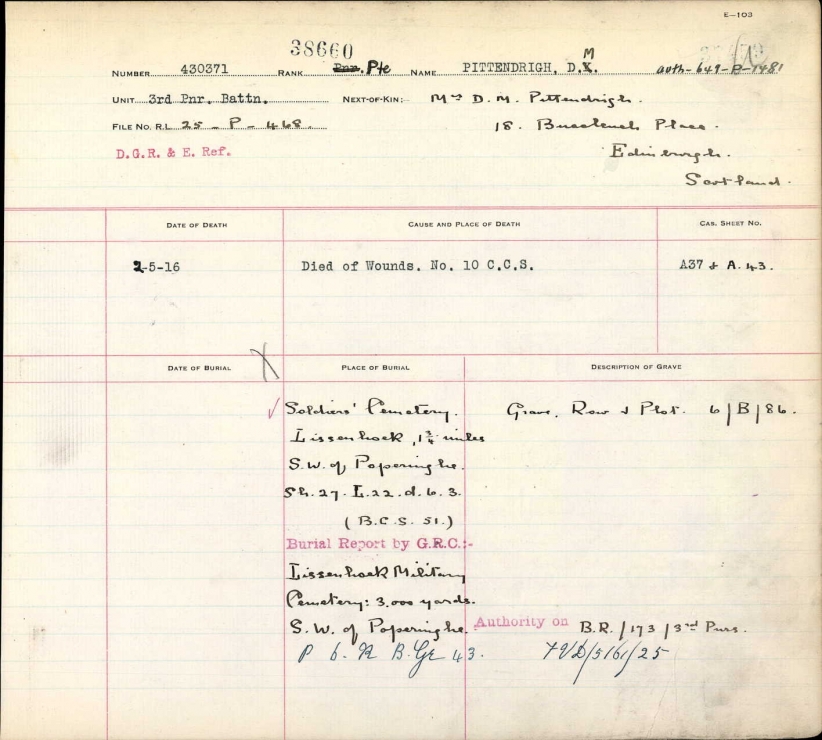 E—103
38660
NUMBER 430371 RANK Pnr. Pte NAME PITTENDRIGH, D.M. auth-649-P-1481
UNIT 3rd Pnr. Battn. NEXT-OF-KIN:- Mrs D. M. Pittendrigh.
FILE NO. R.L. 25 - P - 468. 18. Buccleuch Place.
D.G.R. & E. Ref. Edinburgh.
Scotland.
DATE OF DEATH CAUSE AND PLACE OF DEATH CAS. SHEET NO.
2-5-16 Died of Wounds. No. 10 C.C.S. A37 & A.43.
DATE OF BURIAL PLACE OF BURIAL DESCRIPTION OF GRAVE
Soldiers' Cemetery. Grave, Row & Plot. 6/B/86.
Lissenhoek, 1 3/4 miles
S.W. of Poperinghe.
Sh. 27. L.22.d.6.3.
(B.C.S. 51.)
Burial Report by G.R.C.:-
Lissenhoek Military
Cemetery: 3,000 yards.
S.W. of Poperinghe. Authority on B.R./173/3rd Pnrs.
P 6. R B. Gr 43.